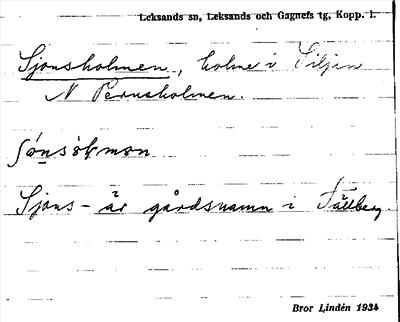 Leksands sn, Leksands och Gagnefs tg, Kopp. l.
Sjonsholmen, holme i Siljan
N Pernsholmen.
Sjons- är gårdsnamn i Tällberg.
Bror Lindén 1934